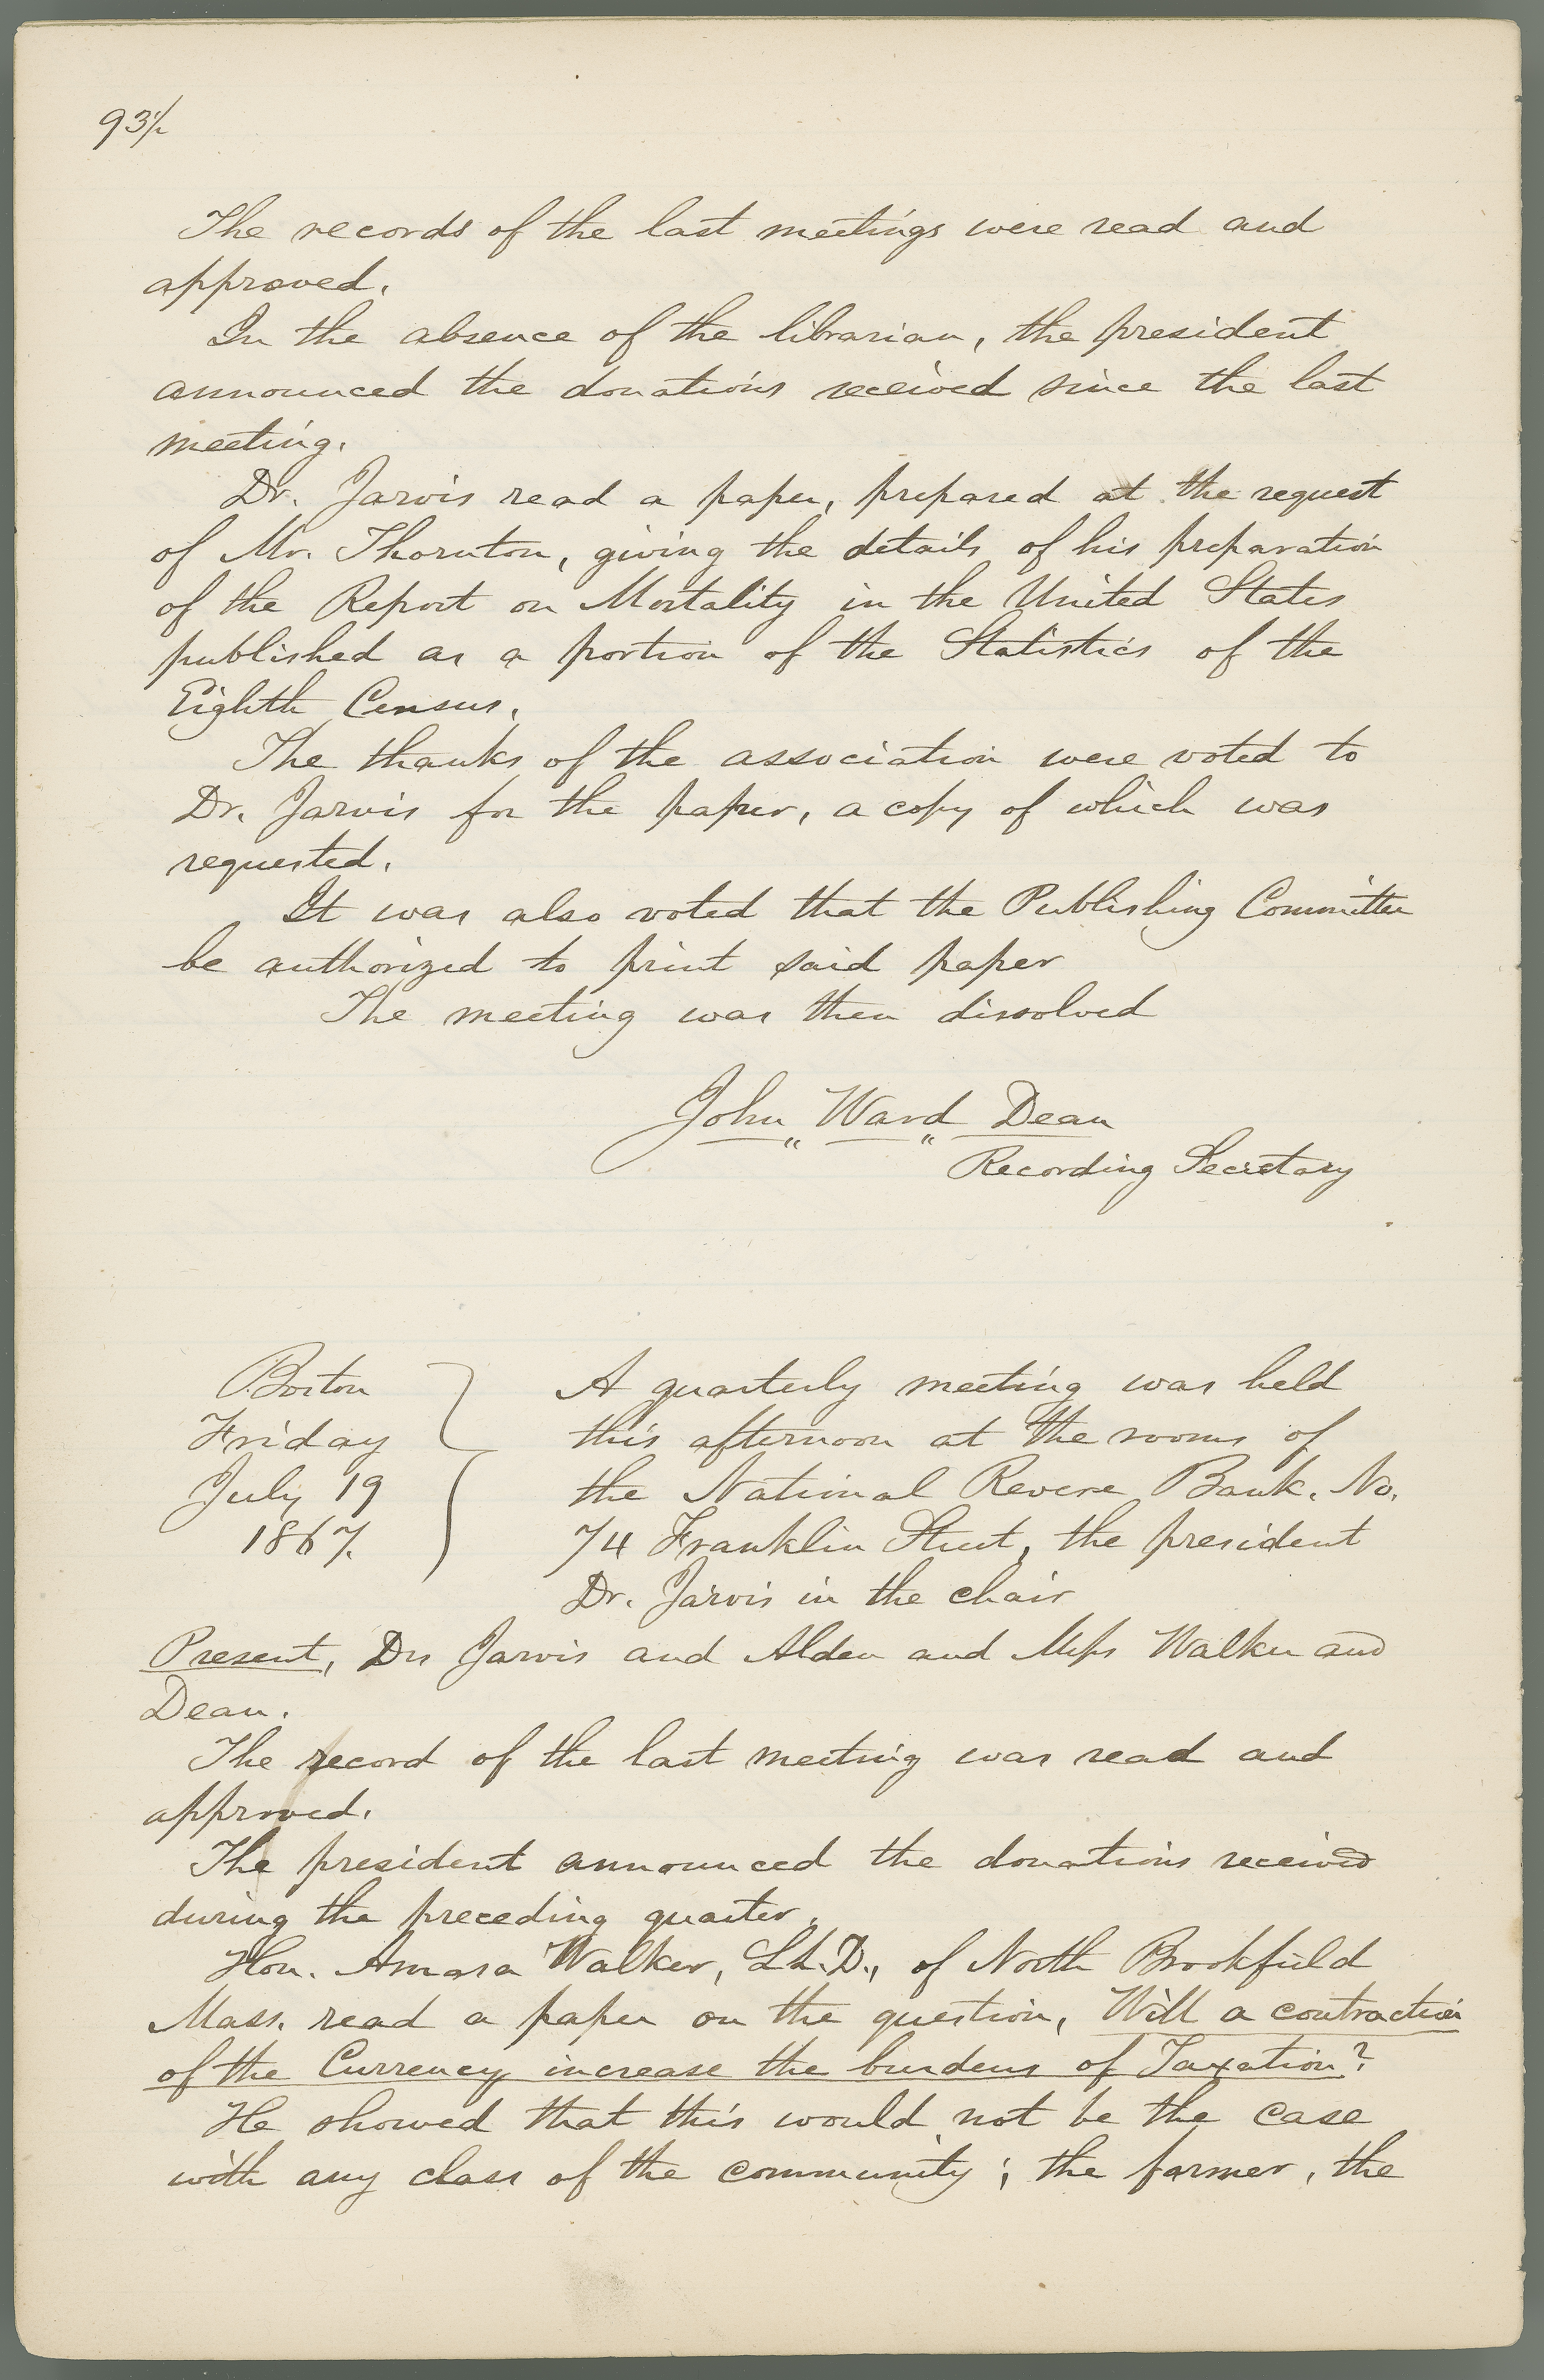 93½
The records of the last meetings were read and
approved.
In the absence of the librarian, the president
announced the donations received since the last
meeting.
Dr. Jarvis read a paper, prepared at the request
of Mr. Thornton, giving the details of his preparation
of the Report on Mortality in the United States
published as a portion of the Statistics of the
Eighth Census.
The thanks of the association were voted to
Dr. Jarvis for the paper, a copy of which was
requested.
It was also voted that the Publishing Committee
be authorized to print said paper
The meeting was then dissolved
John " Ward " Dean
Recording Secretary
Boston
Friday
July 19
1867.
A quarterly meeting was held
this afternoon at the rooms of
the National Revere Bank, No.
74 Franklin Street, the president
Dr. Jarvis in the chair
Present, Drs Jarvis and Alden and Mess Walker and
Dean.
The record of the last meeting was read and
approved.
The president announced the donations received
during the preceding quarter.
Hon. Amasa Walker, LL.D., of North Brookfield
Mass. read a paper on the question, Will a contraction
of the Currency increase the burdens of Taxation?
He showed that this would not be the case
with any class of the community; the farmer, the